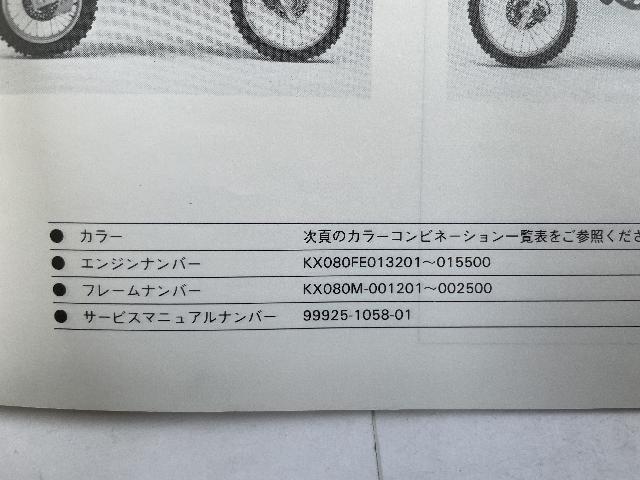 ● カラー 次頁のカラーコンビネーション一覧表をご参照くださ
● エンジンナンバー KX080FE013201〜015500
● フレームナンバー KX080M-001201〜002500
● サービスマニュアルナンバー 99925-1058-01